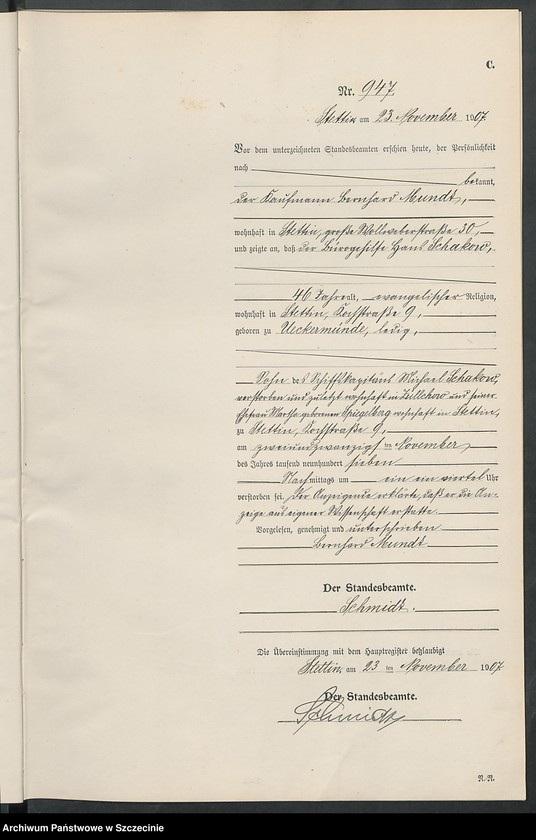 C.
Nr. 947.
Stettin am 23. November 1907.
Vor dem unterzeichneten Standesbeamten erschien heute, der Persönlichkeit
nach
bekannt,
der Kaufmann Bernhard Mundt,
wohnhaft in Stettin, große Wollweberstraße 30,
und zeigte an, daß der Bürogehilfe Hans Schakow,
46 Jahre alt, evangelischer Religion,
wohnhaft in Stettin, Kochstraße 9,
geboren zu Ueckermünde, ledig,
Sohn des Schiffskapitäns Michael Schakow,
verstorben und zuletzt wohnhaft in Züllchow und seiner
Ehefrau Martha geborenen Spiegelberg wohnhaft in Stettin,
zu Stettin, Kochstraße 9,
am zweiundzwanzigsten November
des Jahres tausend neunhundert sieben
Nachmittags um ein ein viertel Uhr
verstorben sei. Der Anzeigende erklärte, daß er die An-
zeige aus eigener Wissenschaft erstatte.
Vorgelesen, genehmigt und unterschrieben
Bernhard Mundt
Der Standesbeamte.
Schmidt.
Die Übereinstimmung mit dem Hauptregister beglaubigt
Stettin, am 23 ten November 1907.
Der Standesbeamte.
Schmidt
N. N.
Archiwum Państwowe w Szczecinie